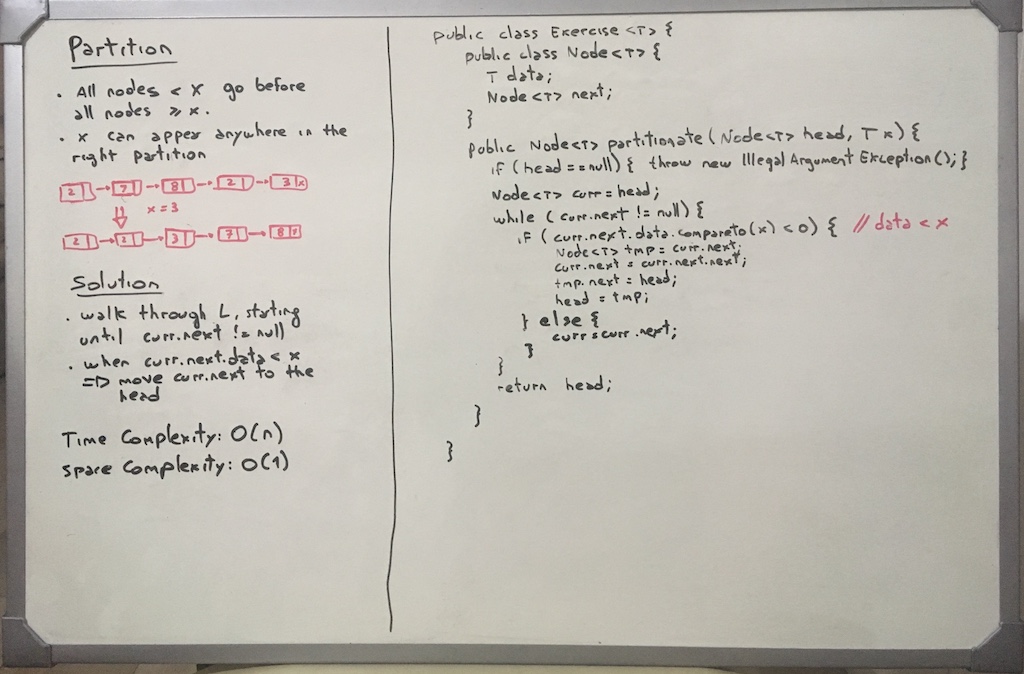 Partition
• All nodes < x go before
all nodes >= x.
• x can apper anywhere in the
right partition
2 → 7 → 8 → 2 → 3
x = 3
2 → 2 → 3 → 7 → 8
Solution
• walk through L, starting
until curr.next != null
• when curr.next.data < x
=> move curr.next to the
head
Time Complexity: O(n)
Space Complexity: O(1)
public class Exercise <T> {
public class Node<T> {
T data;
Node<T> next;
}
public Node<T> partitionate (Node<T> head, T x) {
if (head == null) { throw new Illegal Argument Exception(); }
Node<T> curr = head;
while (curr.next != null) {
if (curr.next.data.compareto(x) < 0) { // data < x
Node<T> tmp = curr.next;
curr.next = curr.next.next;
tmp.next = head;
head = tmp;
} else {
curr = curr.next;
}
}
return head;
}
}